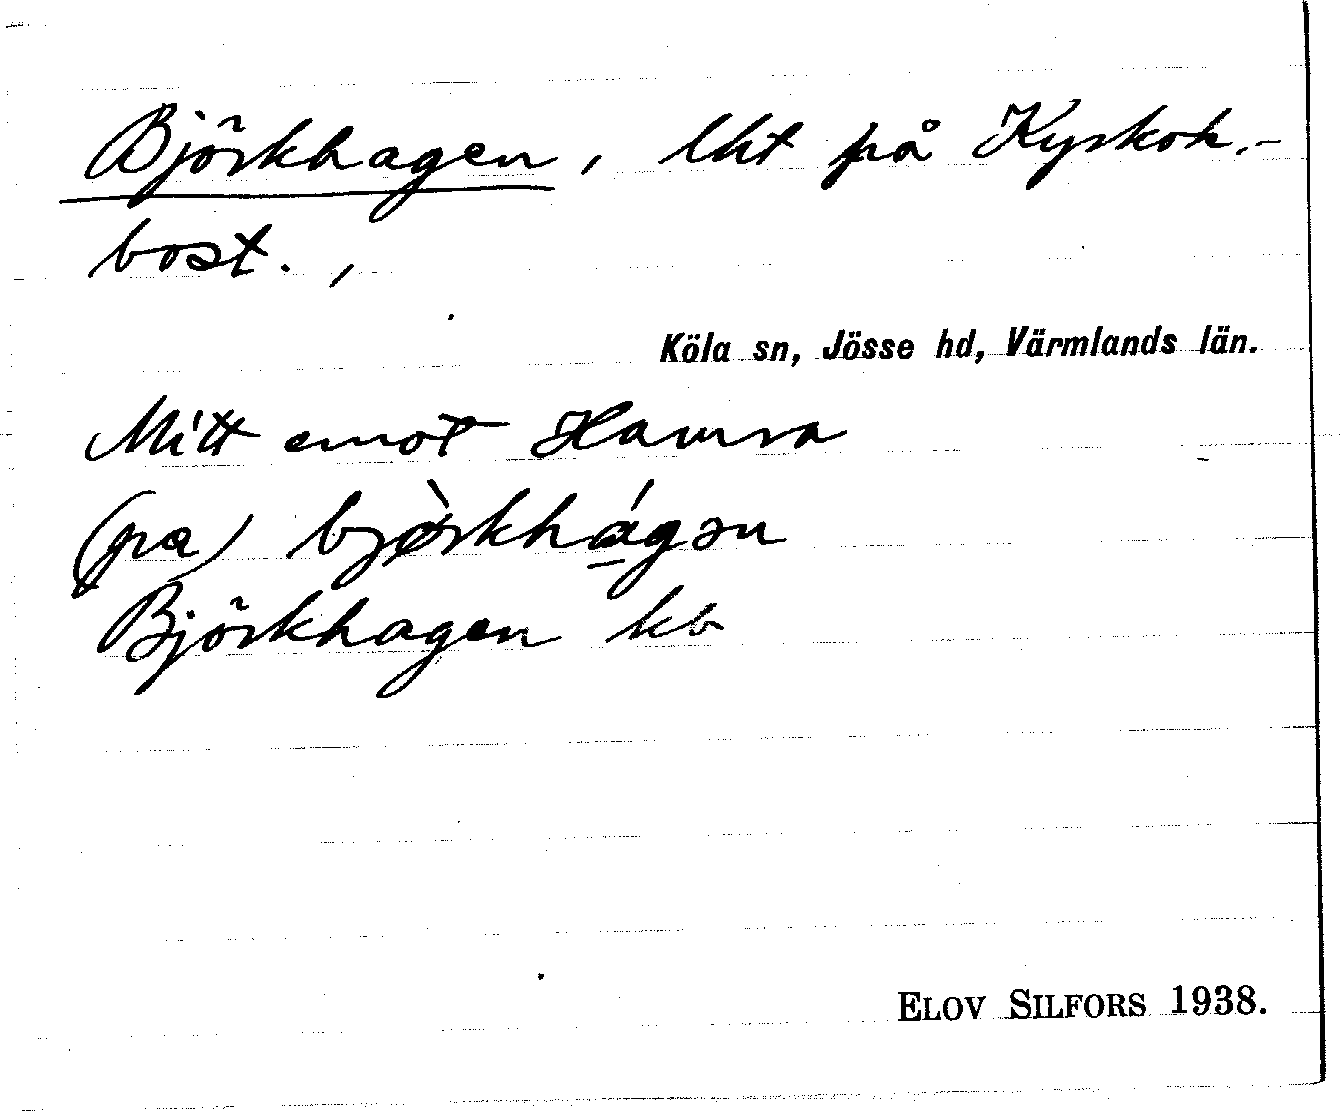 Björkhagen, lht på Kyrkoh.-
bost.,
Köla sn, Jösse hd, Värmlands län.
Mitt emot Hamra
(pa) bjø̀rkhágən
Björkhagen kb
ELOV SILFORS 1938.